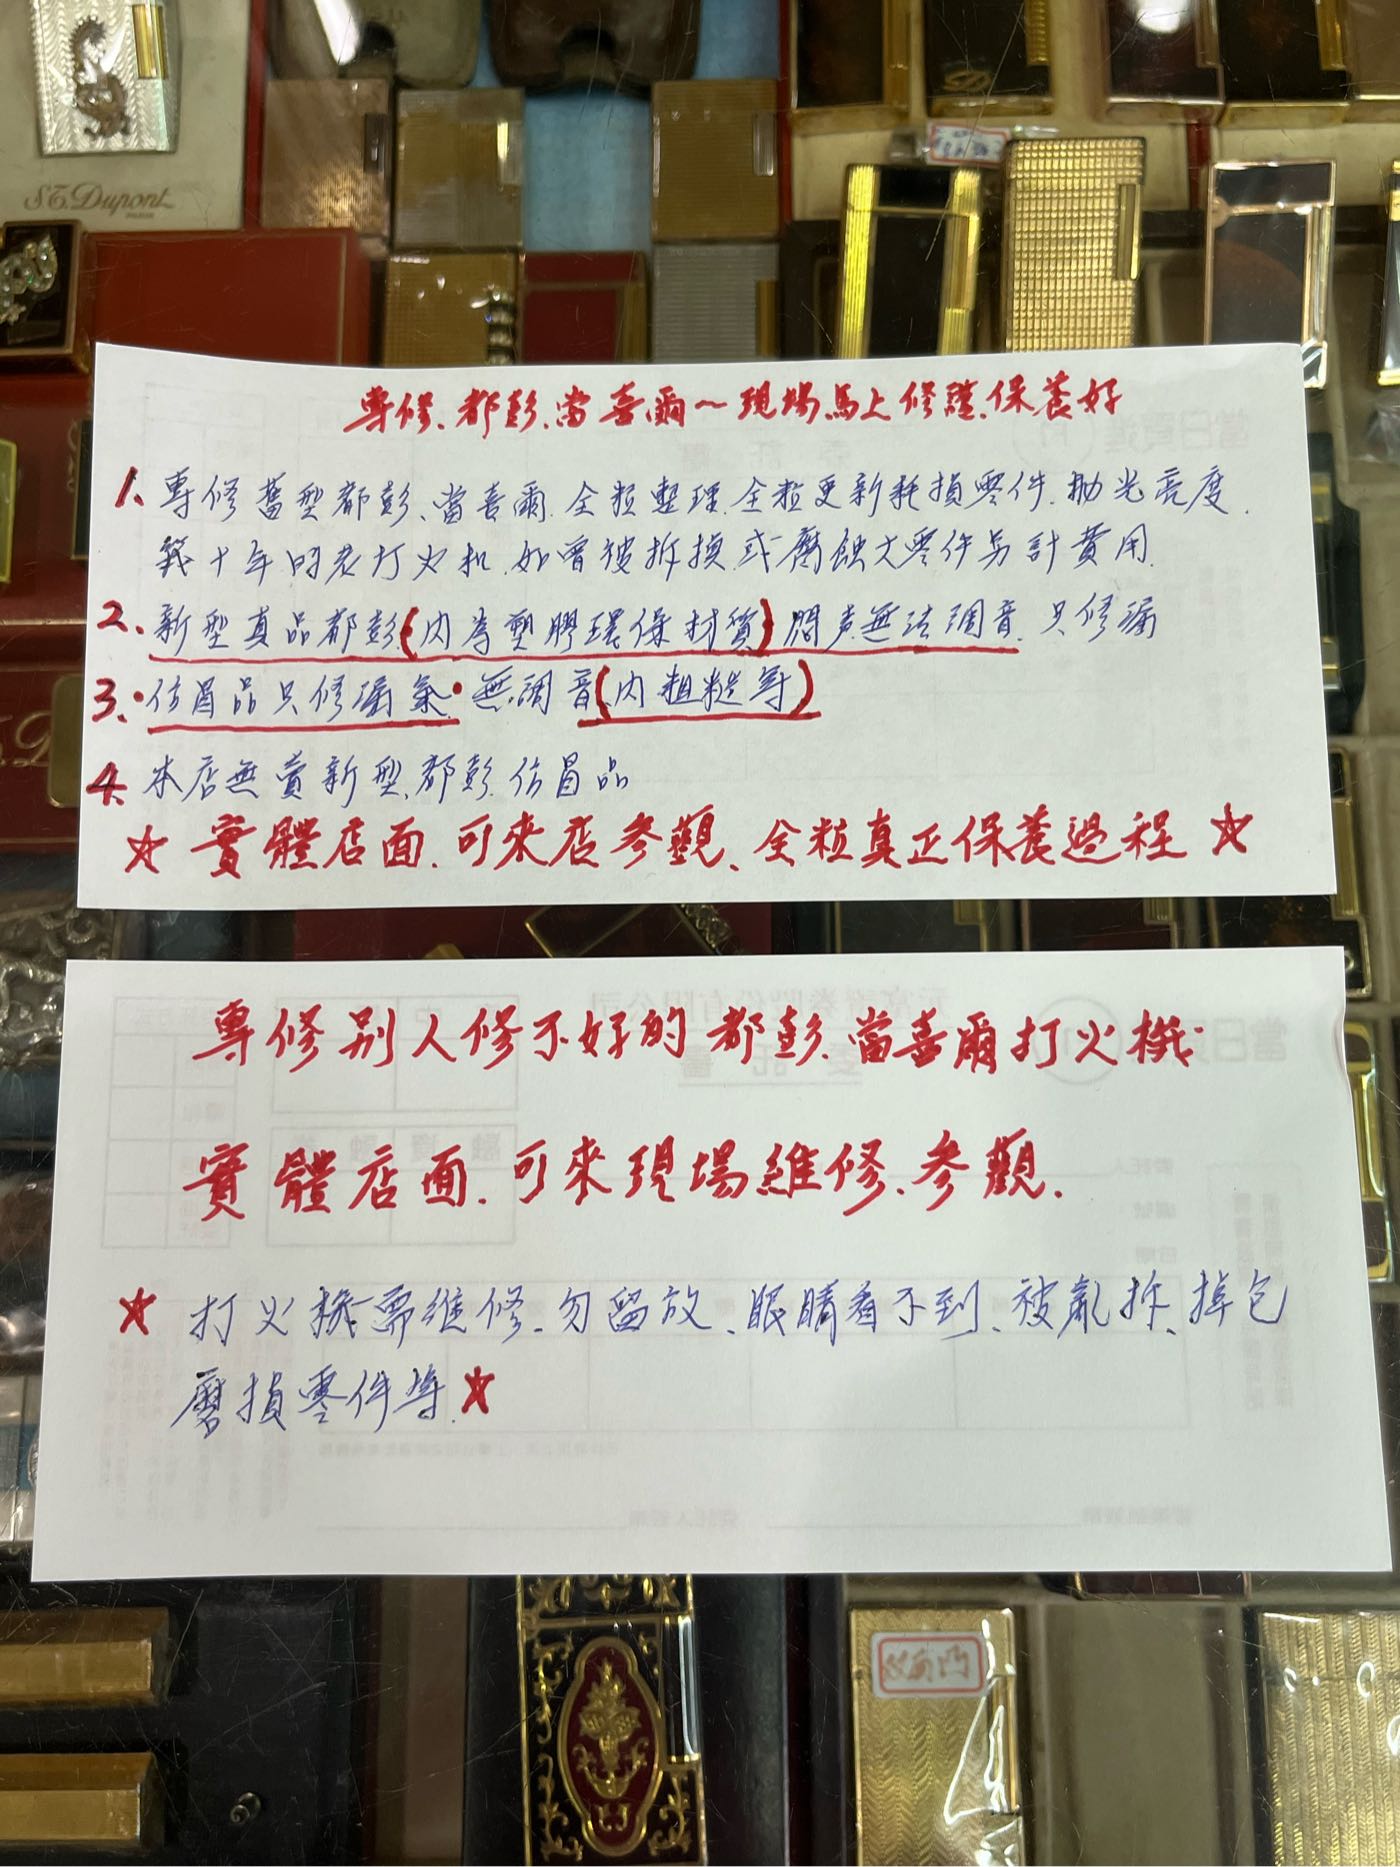 S.T. Dupont
PARIS
專修、都彭、當喜爾～現場馬上修護、保養好
1、專修舊型都彭、當喜爾、全粒整理、全粒更新耗損零件、拋光亮度、
幾十年的老打火机、如曾被拆換或腐蝕大零件另計費用
2、新型真品都彭(內為塑膠環保材質)悶声無法調音、只修漏
3、仿冒品只修漏氣·無調音(內粗糙等)
4、本店無賣新型、都彭、仿冒品
☆ 實體店面、可來店參觀、全粒真正保養過程 ☆
專修別人修不好的都彭、當喜爾打火機·
實體店面、可來現場維修、參觀、
★ 打火機需維修、勿留放、眼睛看不到、被亂拆、掉包
磨損零件等、★